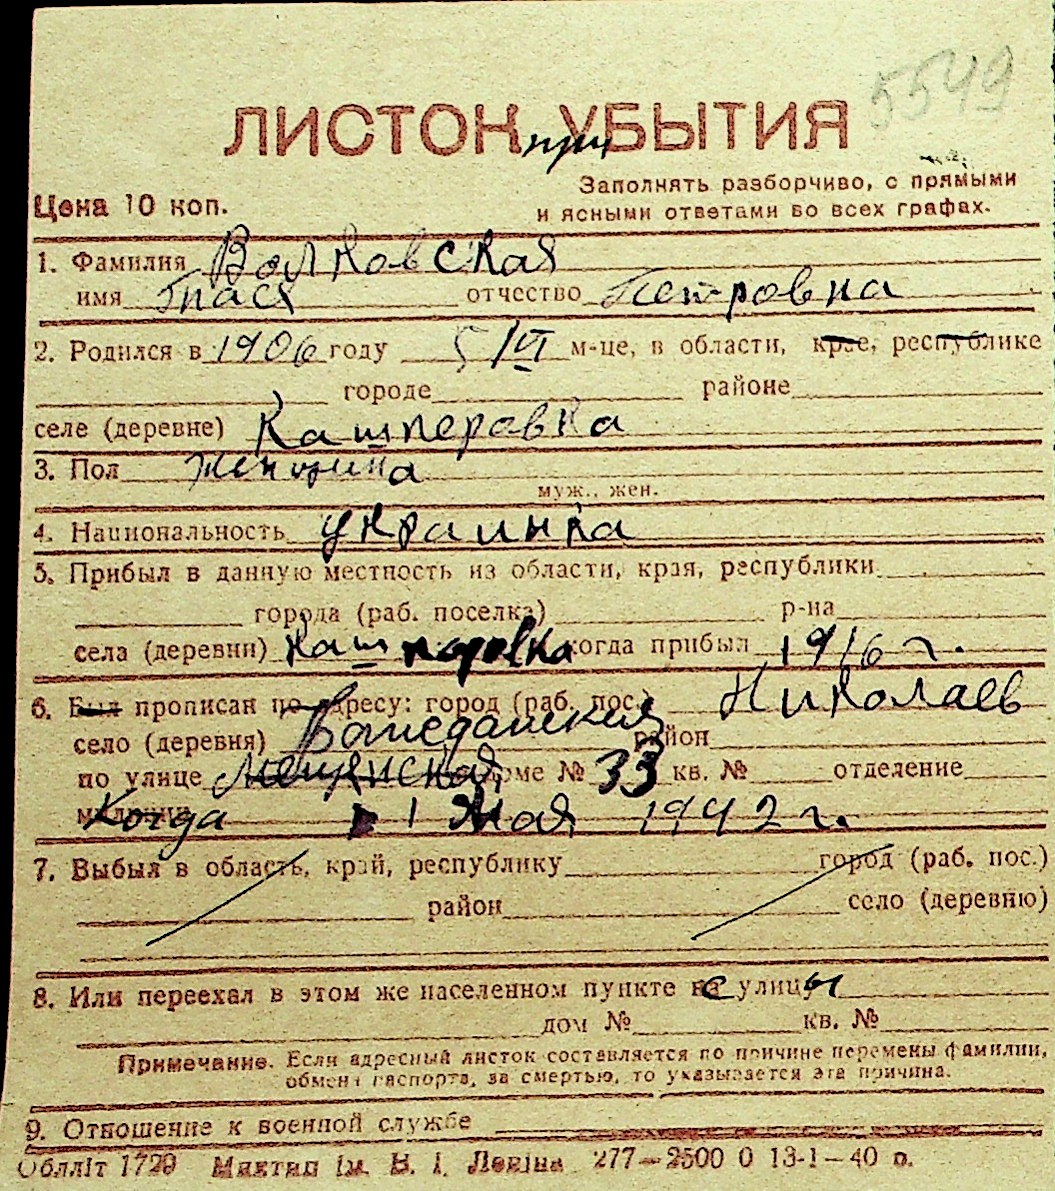 5549
ЛИСТОК при УБЫТИЯ
Заполнять разборчиво, с прямыми
Цена 10 коп. и ясными ответами во всех графах.
1. Фамилия Волковская
имя Тася отчество Петровна
2. Родился в 1906 году 5/VI м-це, в области, крае, республике
городе районе
селе (деревне) Кашперовка
3. Пол женщина
муж., жен.
4. Национальность украинка
5. Прибыл в данную местность из области, края, республики
города (раб. поселка) р-на
села (деревни) Кашперовка когда прибыл 1916 г.
6. Был прописан по адресу: город (раб. пос.) Николаев
село (деревня) район
по улице Мещанская доме № 33 кв. № отделение
милиции Когда 1 Мая 1942 г.
7. Выбыл в область, край, республику город (раб. пос.)
район село (деревню)
8. Или переехал в этом же населенном пункте на с улицы
дом № кв. №
Примечание. Если адресный листок составляется по причине перемены фамилии,
обмена паспорта, за смертью, то указывается эта причина.
9. Отношение к военной службе
Облліт 1729 Миктип ім. В. І. Леніна 277—2500 0 13-1—40 р.